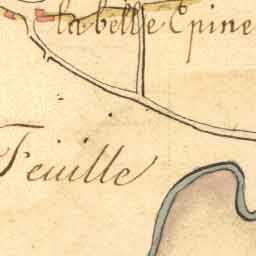 la belle Epine
Feuille